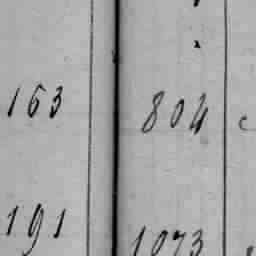 163 804
191 1073